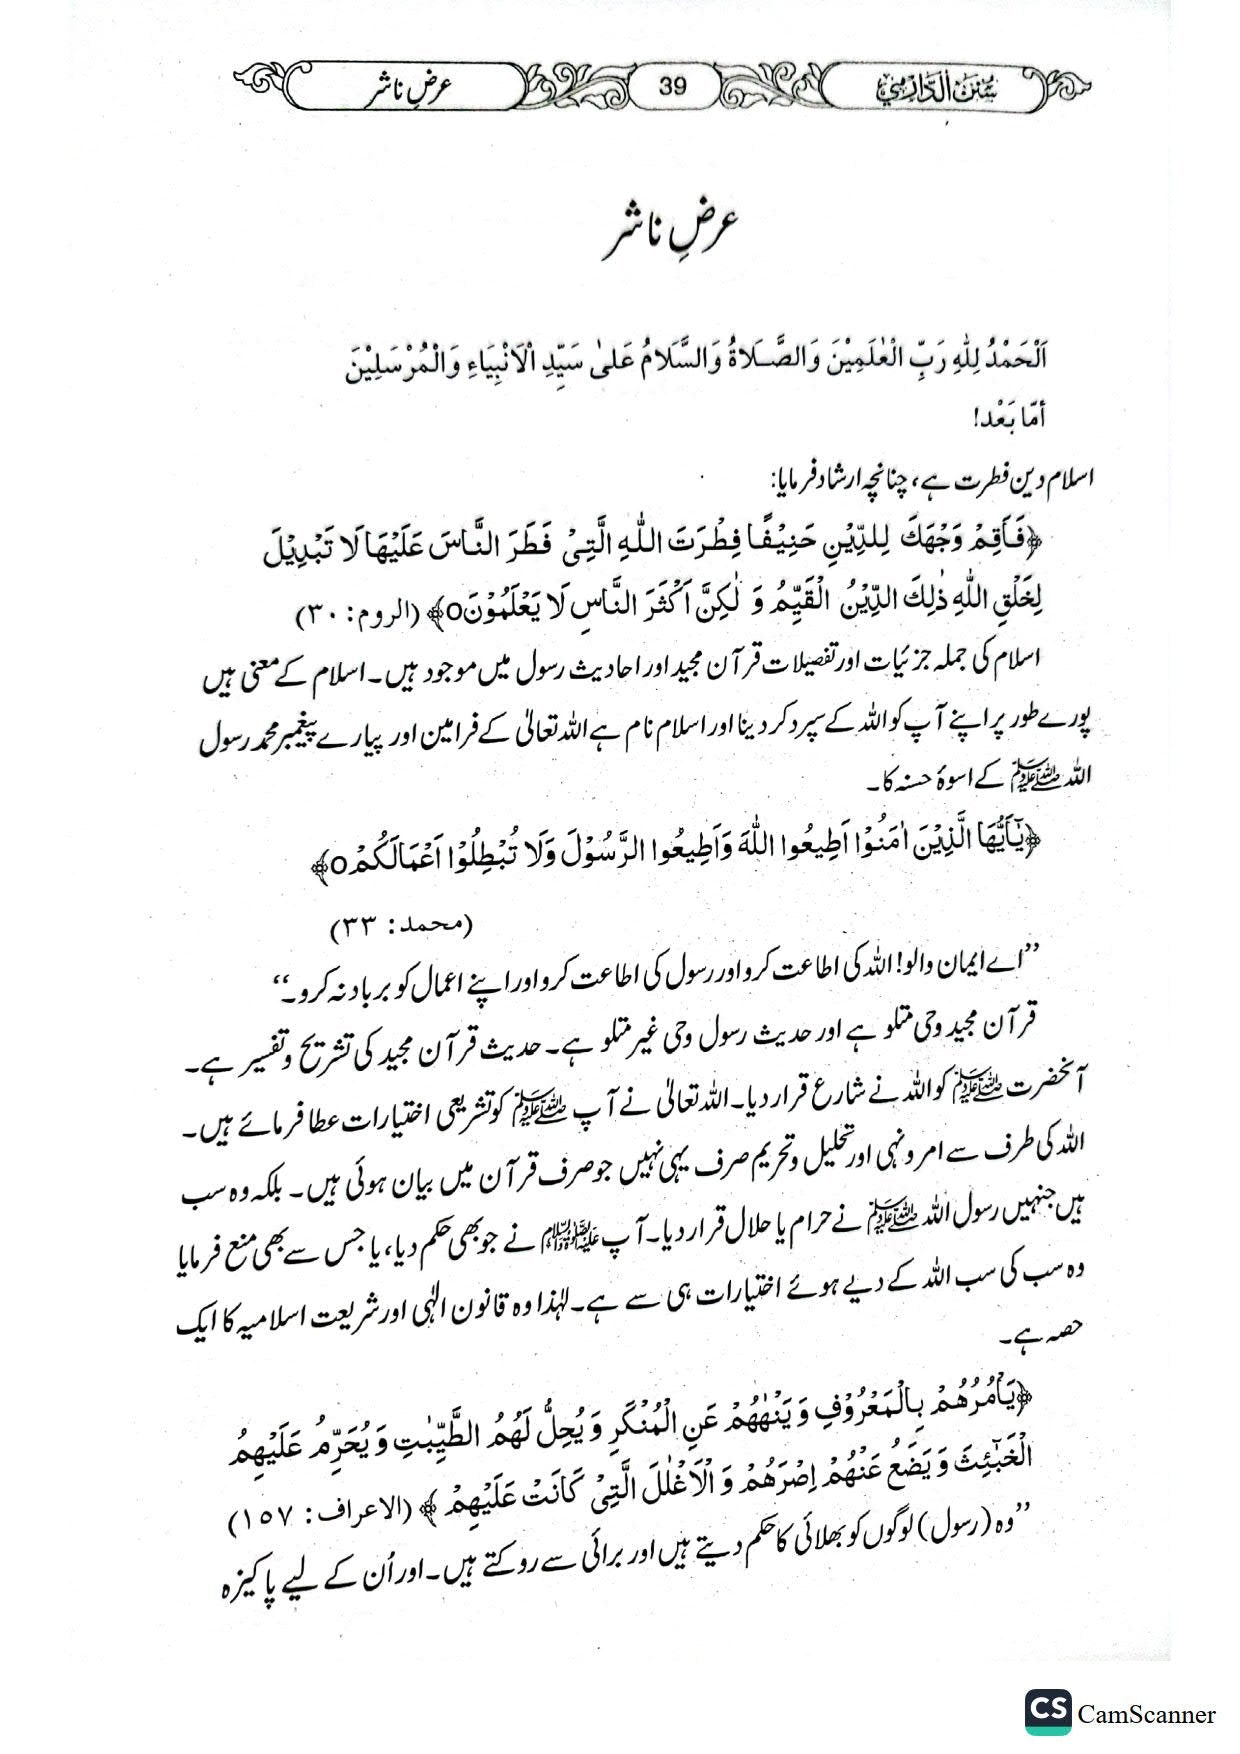 سُنَنُ الدَّارِمِي 39 عرضِ ناشر
عرضِ ناشر
اَلْحَمْدُ لِلّٰهِ رَبِّ الْعٰلَمِيْنَ وَالصَّلَاةُ وَالسَّلَامُ عَلىٰ سَيِّدِ الْاَنْبِيَاءِ وَالْمُرْسَلِيْنَ
أمّا بَعْد!
اسلام دین فطرت ہے، چنانچہ ارشاد فرمایا:
﴿فَاَقِمْ وَجْهَكَ لِلدِّيْنِ حَنِيْفًا فِطْرَتَ اللّٰهِ الَّتِيْ فَطَرَ النَّاسَ عَلَيْهَا لَا تَبْدِيْلَ
لِخَلْقِ اللّٰهِ ذٰلِكَ الدِّيْنُ الْقَيِّمُ وَ لٰكِنَّ اَكْثَرَ النَّاسِ لَا يَعْلَمُوْنَo﴾ (الروم: ۳۰)
اسلام کی جملہ جزئیات اور تفصیلات قرآن مجید اور احادیث رسول میں موجود ہیں۔ اسلام کے معنی ہیں
پورے طور پر اپنے آپ کو اللہ کے سپرد کر دینا اور اسلام نام ہے اللہ تعالیٰ کے فرامین اور پیارے پیغمبر محمد رسول
اللہ ﷺ کے اسوۂ حسنہ کا۔
﴿يٰٓاَيُّهَا الَّذِيْنَ اٰمَنُوْا اَطِيعُوا اللّٰهَ وَاَطِيعُوا الرَّسُوْلَ وَلَا تُبْطِلُوْا اَعْمَالَكُمْo﴾
(محمد: ۳۳)
’’اے ایمان والو! اللہ کی اطاعت کرو اور رسول کی اطاعت کرو اور اپنے اعمال کو برباد نہ کرو۔‘‘
قرآن مجید وحی متلو ہے اور حدیث رسول وحی غیر متلو ہے۔ حدیث قرآن مجید کی تشریح و تفسیر ہے۔
آنحضرت ﷺ کو اللہ نے شارع قرار دیا۔ اللہ تعالیٰ نے آپ ﷺ کو تشریعی اختیارات عطا فرمائے ہیں۔
اللہ کی طرف سے امر و نہی اور تحلیل و تحریم صرف یہی نہیں جو صرف قرآن میں بیان ہوئی ہیں۔ بلکہ وہ سب
ہیں جنہیں رسول اللہ ﷺ نے حرام یا حلال قرار دیا۔ آپ ﷺ نے جو بھی حکم دیا، یا جس سے بھی منع فرمایا
وہ سب کی سب اللہ کے دیے ہوئے اختیارات ہی سے ہے۔ لہٰذا وہ قانون الٰہی اور شریعت اسلامیہ کا ایک
حصہ ہے۔
﴿يَاْمُرُهُمْ بِالْمَعْرُوْفِ وَ يَنْهٰهُمْ عَنِ الْمُنْكَرِ وَ يُحِلُّ لَهُمُ الطَّيِّبٰتِ وَ يُحَرِّمُ عَلَيْهِمُ
الْخَبٰٓئِثَ وَ يَضَعُ عَنْهُمْ اِصْرَهُمْ وَ الْاَغْلٰلَ الَّتِيْ كَانَتْ عَلَيْهِمْ ﴾ (الاعراف: ۱۵۷)
’’وہ (رسول) لوگوں کو بھلائی کا حکم دیتے ہیں اور برائی سے روکتے ہیں۔ اور اُن کے لیے پاکیزہ
CS CamScanner